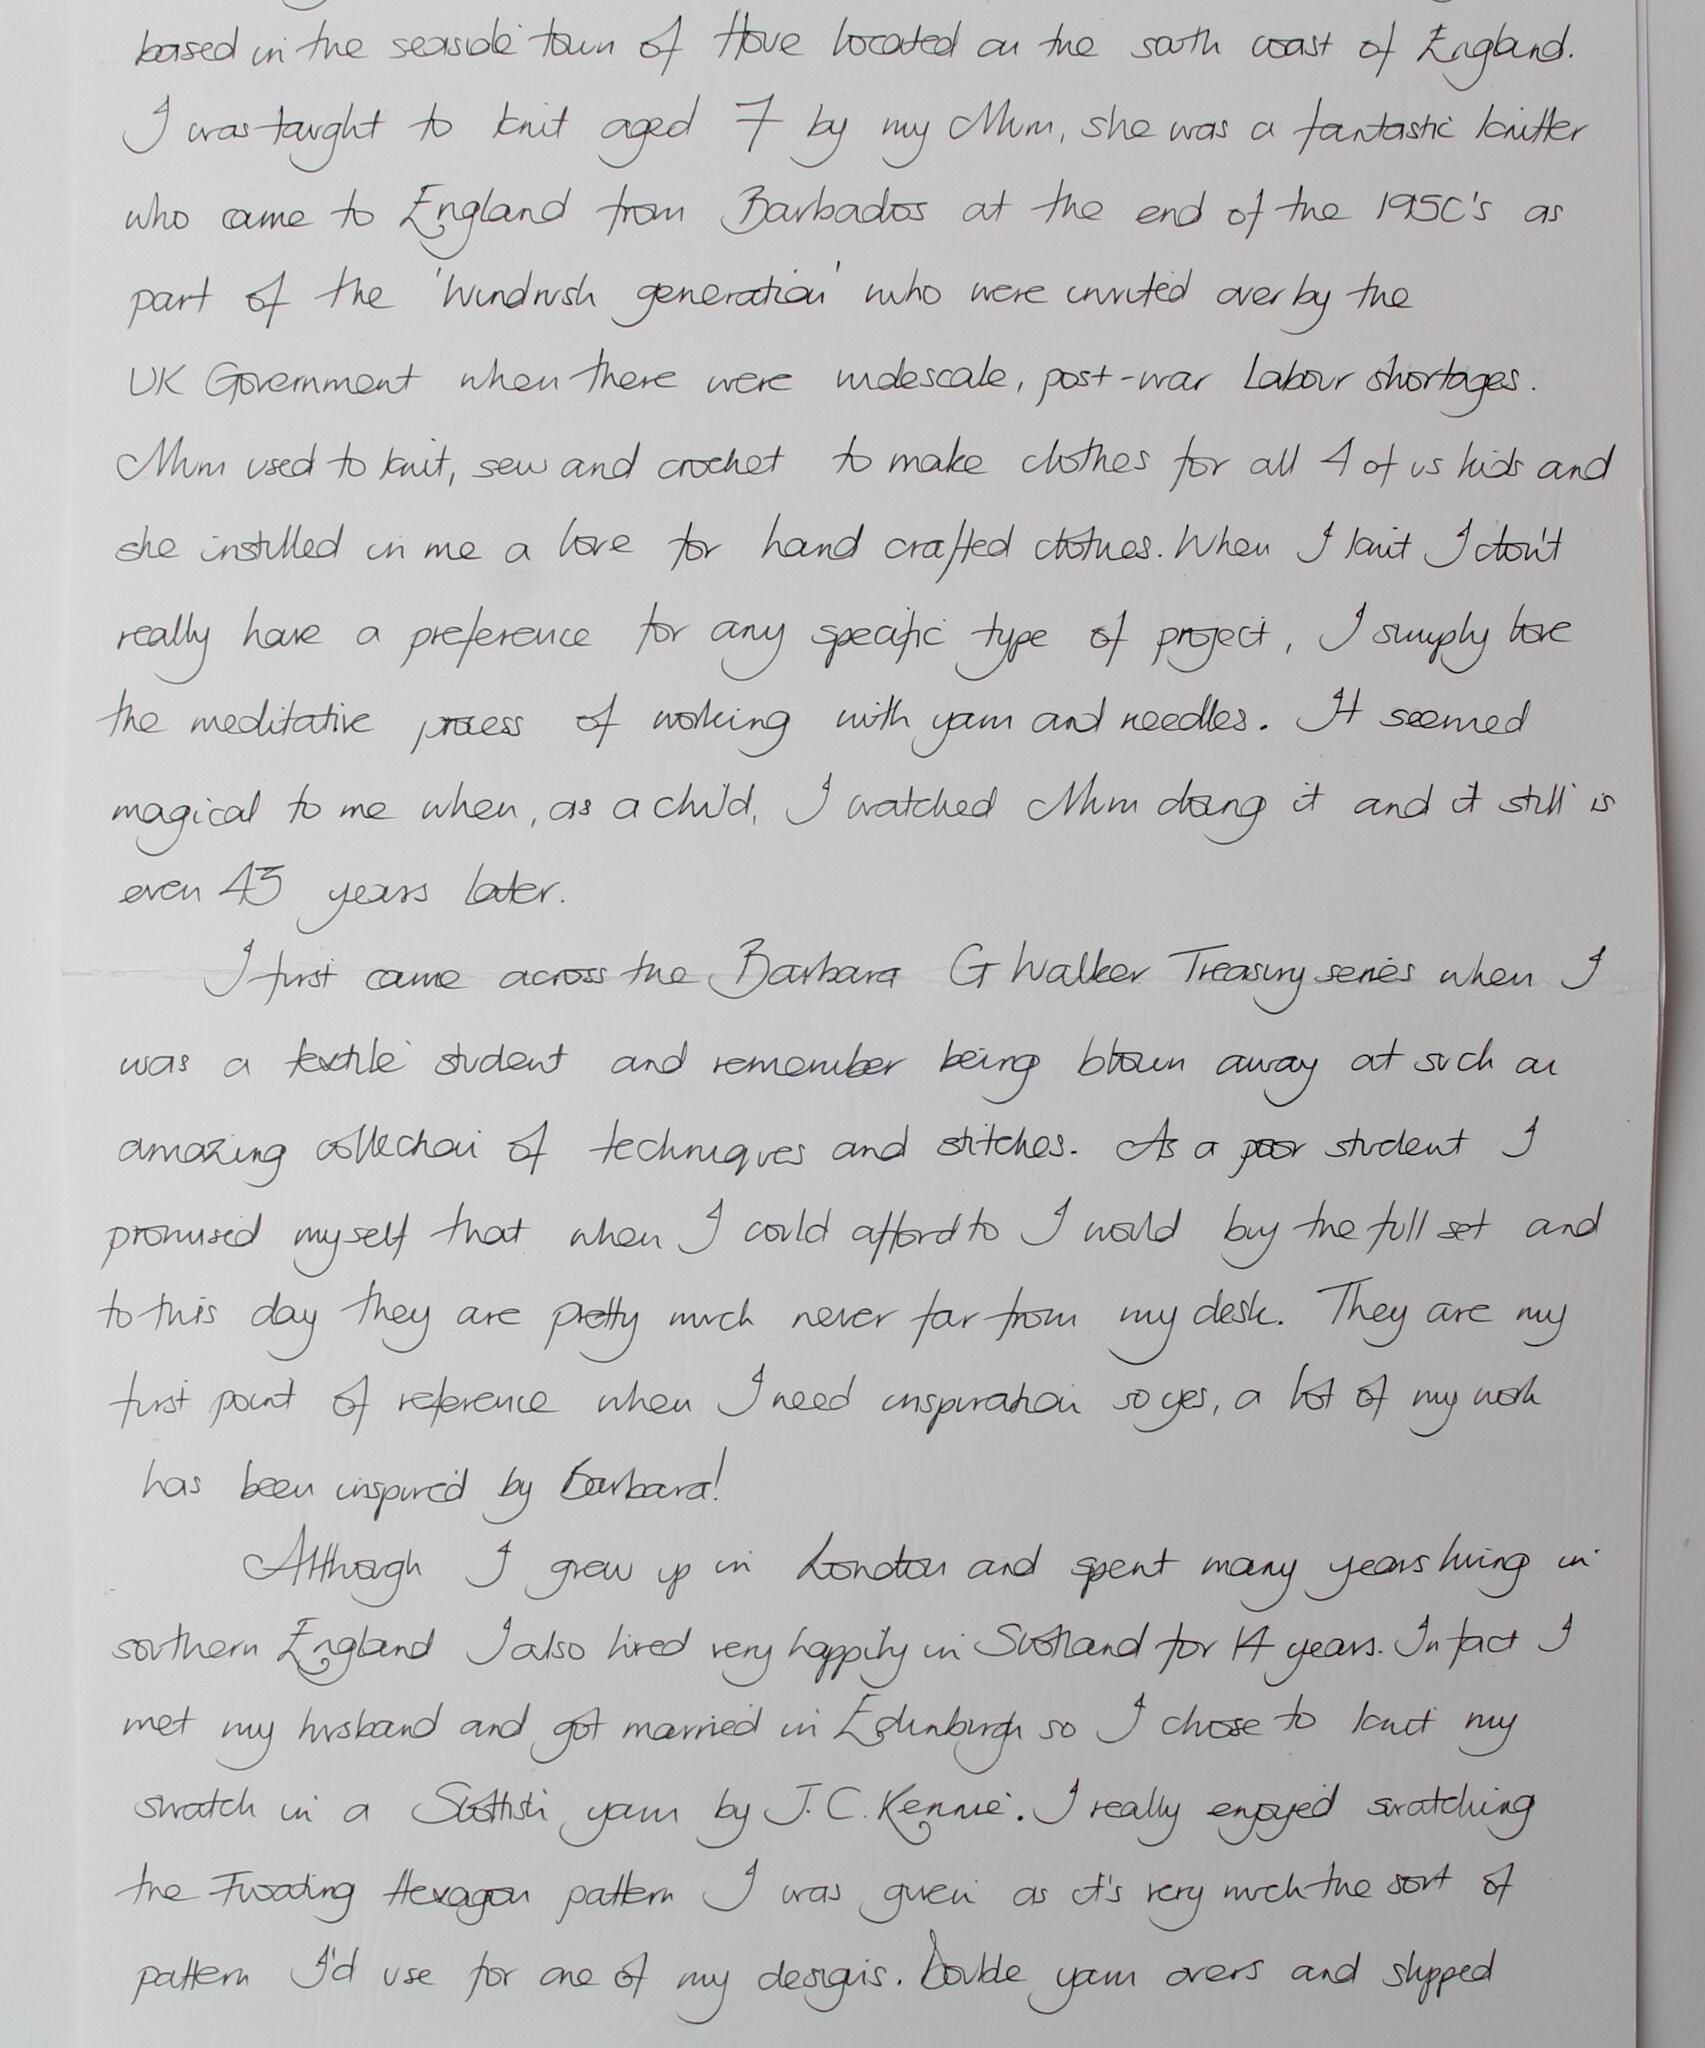 based in the seaside town of Hove located on the south coast of England.
I was taught to knit aged 7 by my Mum, she was a fantastic knitter
who came to England from Barbados at the end of the 1950's as
part of the 'Windrush generation' who were invited over by the
UK Government when there were widescale, post-war labour shortages.
Mum used to knit, sew and crochet to make clothes for all 4 of us kids and
she instilled in me a love for hand crafted clothes. When I knit I don't
really have a preference for any specific type of project, I simply love
the meditative process of working with yarn and needles. It seemed
magical to me when, as a child, I watched Mum doing it and it still is
even 43 years later.
I first came across the Barbara G Walker Treasury series when I
was a textile student and remember being blown away at such an
amazing collection of techniques and stitches. As a poor student I
promised myself that when I could afford to I would buy the full set and
to this day they are pretty much never far from my desk. They are my
first point of reference when I need inspiration so yes, a lot of my work
has been inspired by Barbara!
Although I grew up in London and spent many years living in
southern England I also lived very happily in Scotland for 14 years. In fact I
met my husband and got married in Edinburgh so I chose to knit my
swatch in a Scottish yarn by J.C. Rennie. I really enjoyed swatching
the Hexagon pattern I was given as it's very much the sort of
pattern I'd use for one of my designs. Double yarn overs and slipped